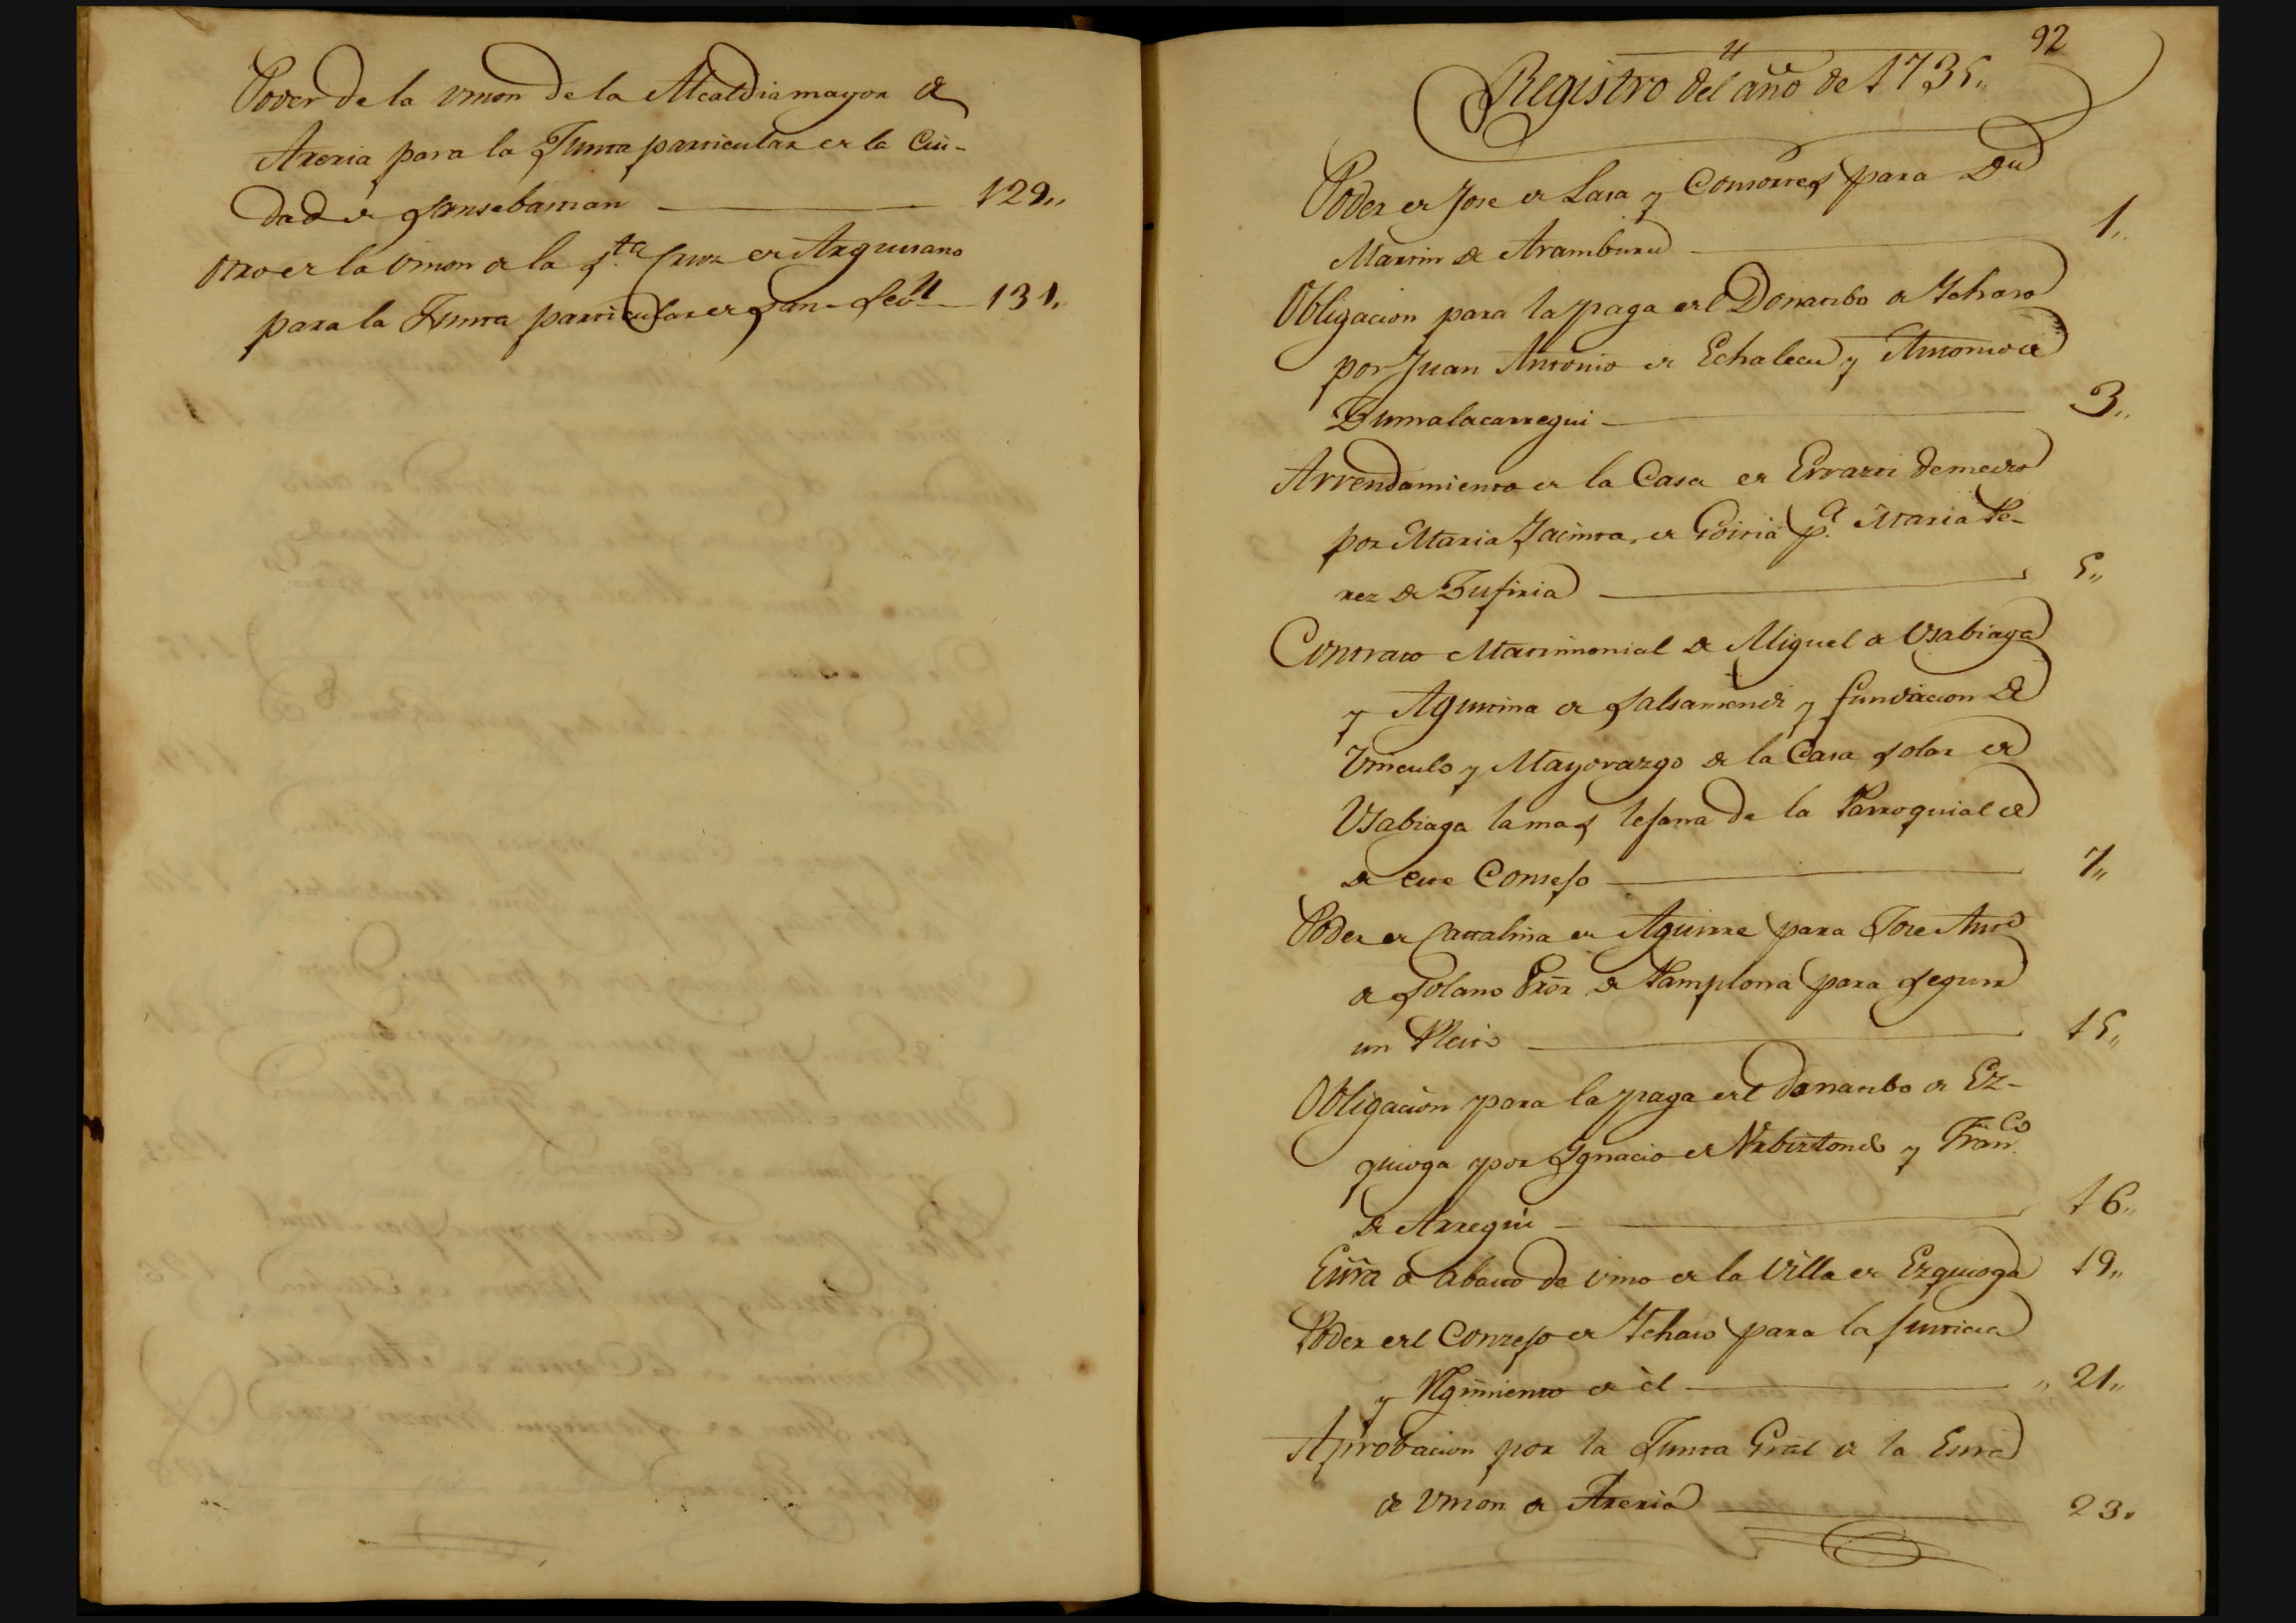 Poder de la Union de la Alcaldia mayor de
Areria para la Junta particular de la Ciu-
dad de Sansebastian 129,,
Otro de la Union de la Sta Cruz de Arguisano
para la Junta particular de San Sebn 131,,
92
Registro del año de 1735,,
Poder de Jose de Lasa y Consortes para Dn
Martin de Aramburu 1,,
Obligacion para la paga del Donativo de Ichaso
por Juan Antonio de Echalecu y Antonio de
Zumalacarregui 3,,
Arrendamiento de la Casa de Errazti demedio
por Maria Jacinta de Goiria pa Maria Pe-
rez de Zufiria 5,,
Contrato Matrimonial de Miguel de Usabiaga
y Agustina de Salsamendi y fundacion de
Vinculo y Mayorazgo de la Casa solar de
Usabiaga la mas lejana de la Parroquial de
de este Consejo 7,,
Poder de Catalina de Aguirre para Jose Anto
de Solano Pror de Pamplona para seguir
un Pleito 15,,
Obligacion para la paga del donativo de Ez-
quioga por Ignacio de Urbiztondo y Franco
de Arregui 16,,
Esrra de abasto de vino de la Villa de Ezquioga 19,,
Poder del Conzejo de Ichaso para la Justicia
y Regimiento de el ,, 21,,
Aprobacion por la Junta Gral de la Esrra
de Union de Areria 23,,